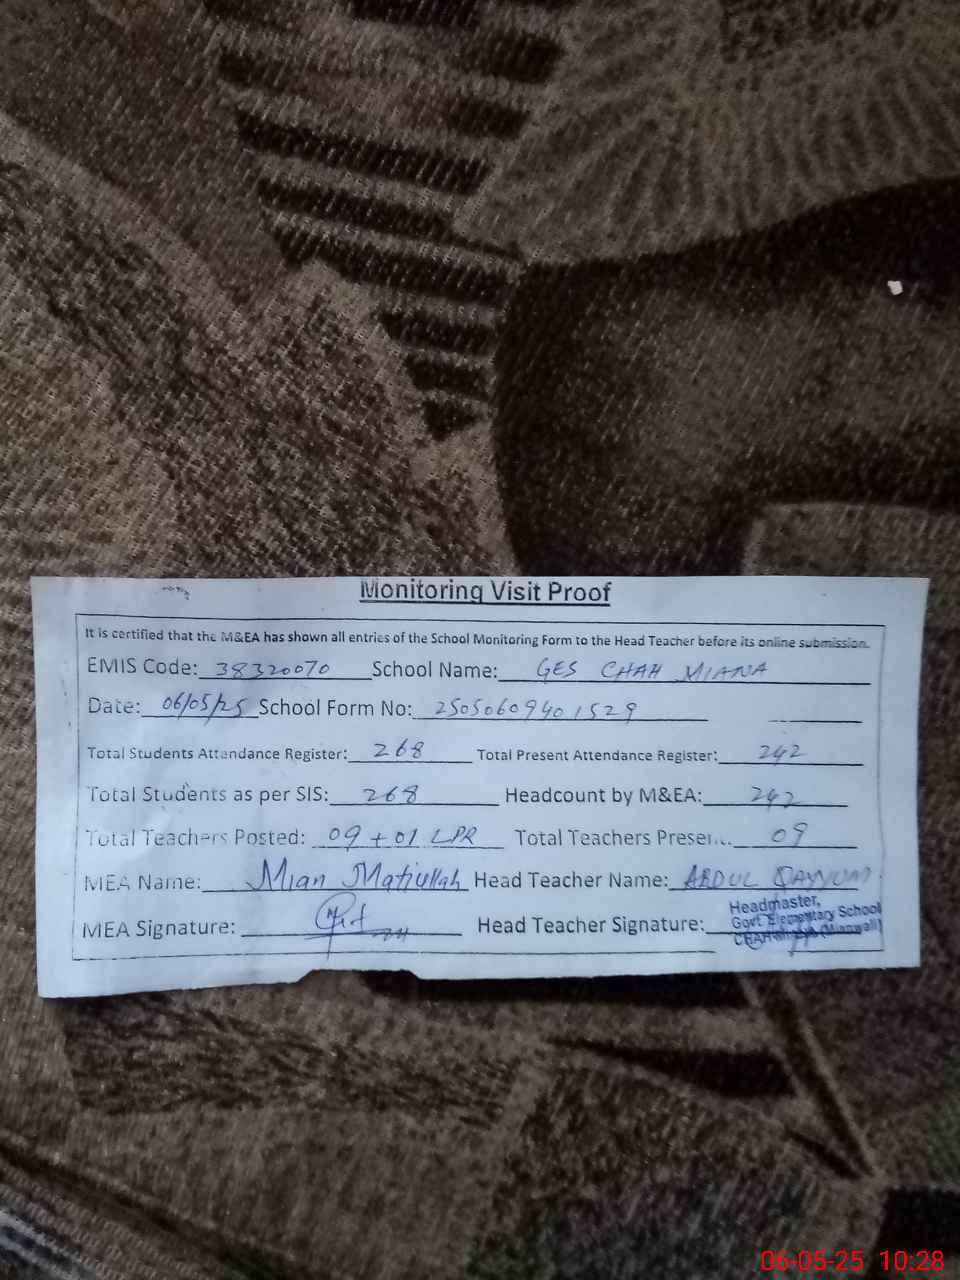 Monitoring Visit Proof
It is certified that the M&EA has shown all entries of the School Monitoring Form to the Head Teacher before its online submission.
EMIS Code: 38320070 School Name: GES CHAH MIANA
Date: 06/05/25 School Form No: 25050609401529
Total Students Attendance Register: 268 Total Present Attendance Register: 242
Total Students as per SIS: 268 Headcount by M&EA: 242
Total Teachers Posted: 09 + 01 LPR Total Teachers Present: 09
MEA Name: Mian Matiullah Head Teacher Name: ABDUL QAYYUM
MEA Signature: Head Teacher Signature:
Headmaster,
Govt. Elementary School
(Mianwali)
06-05-25 10:28